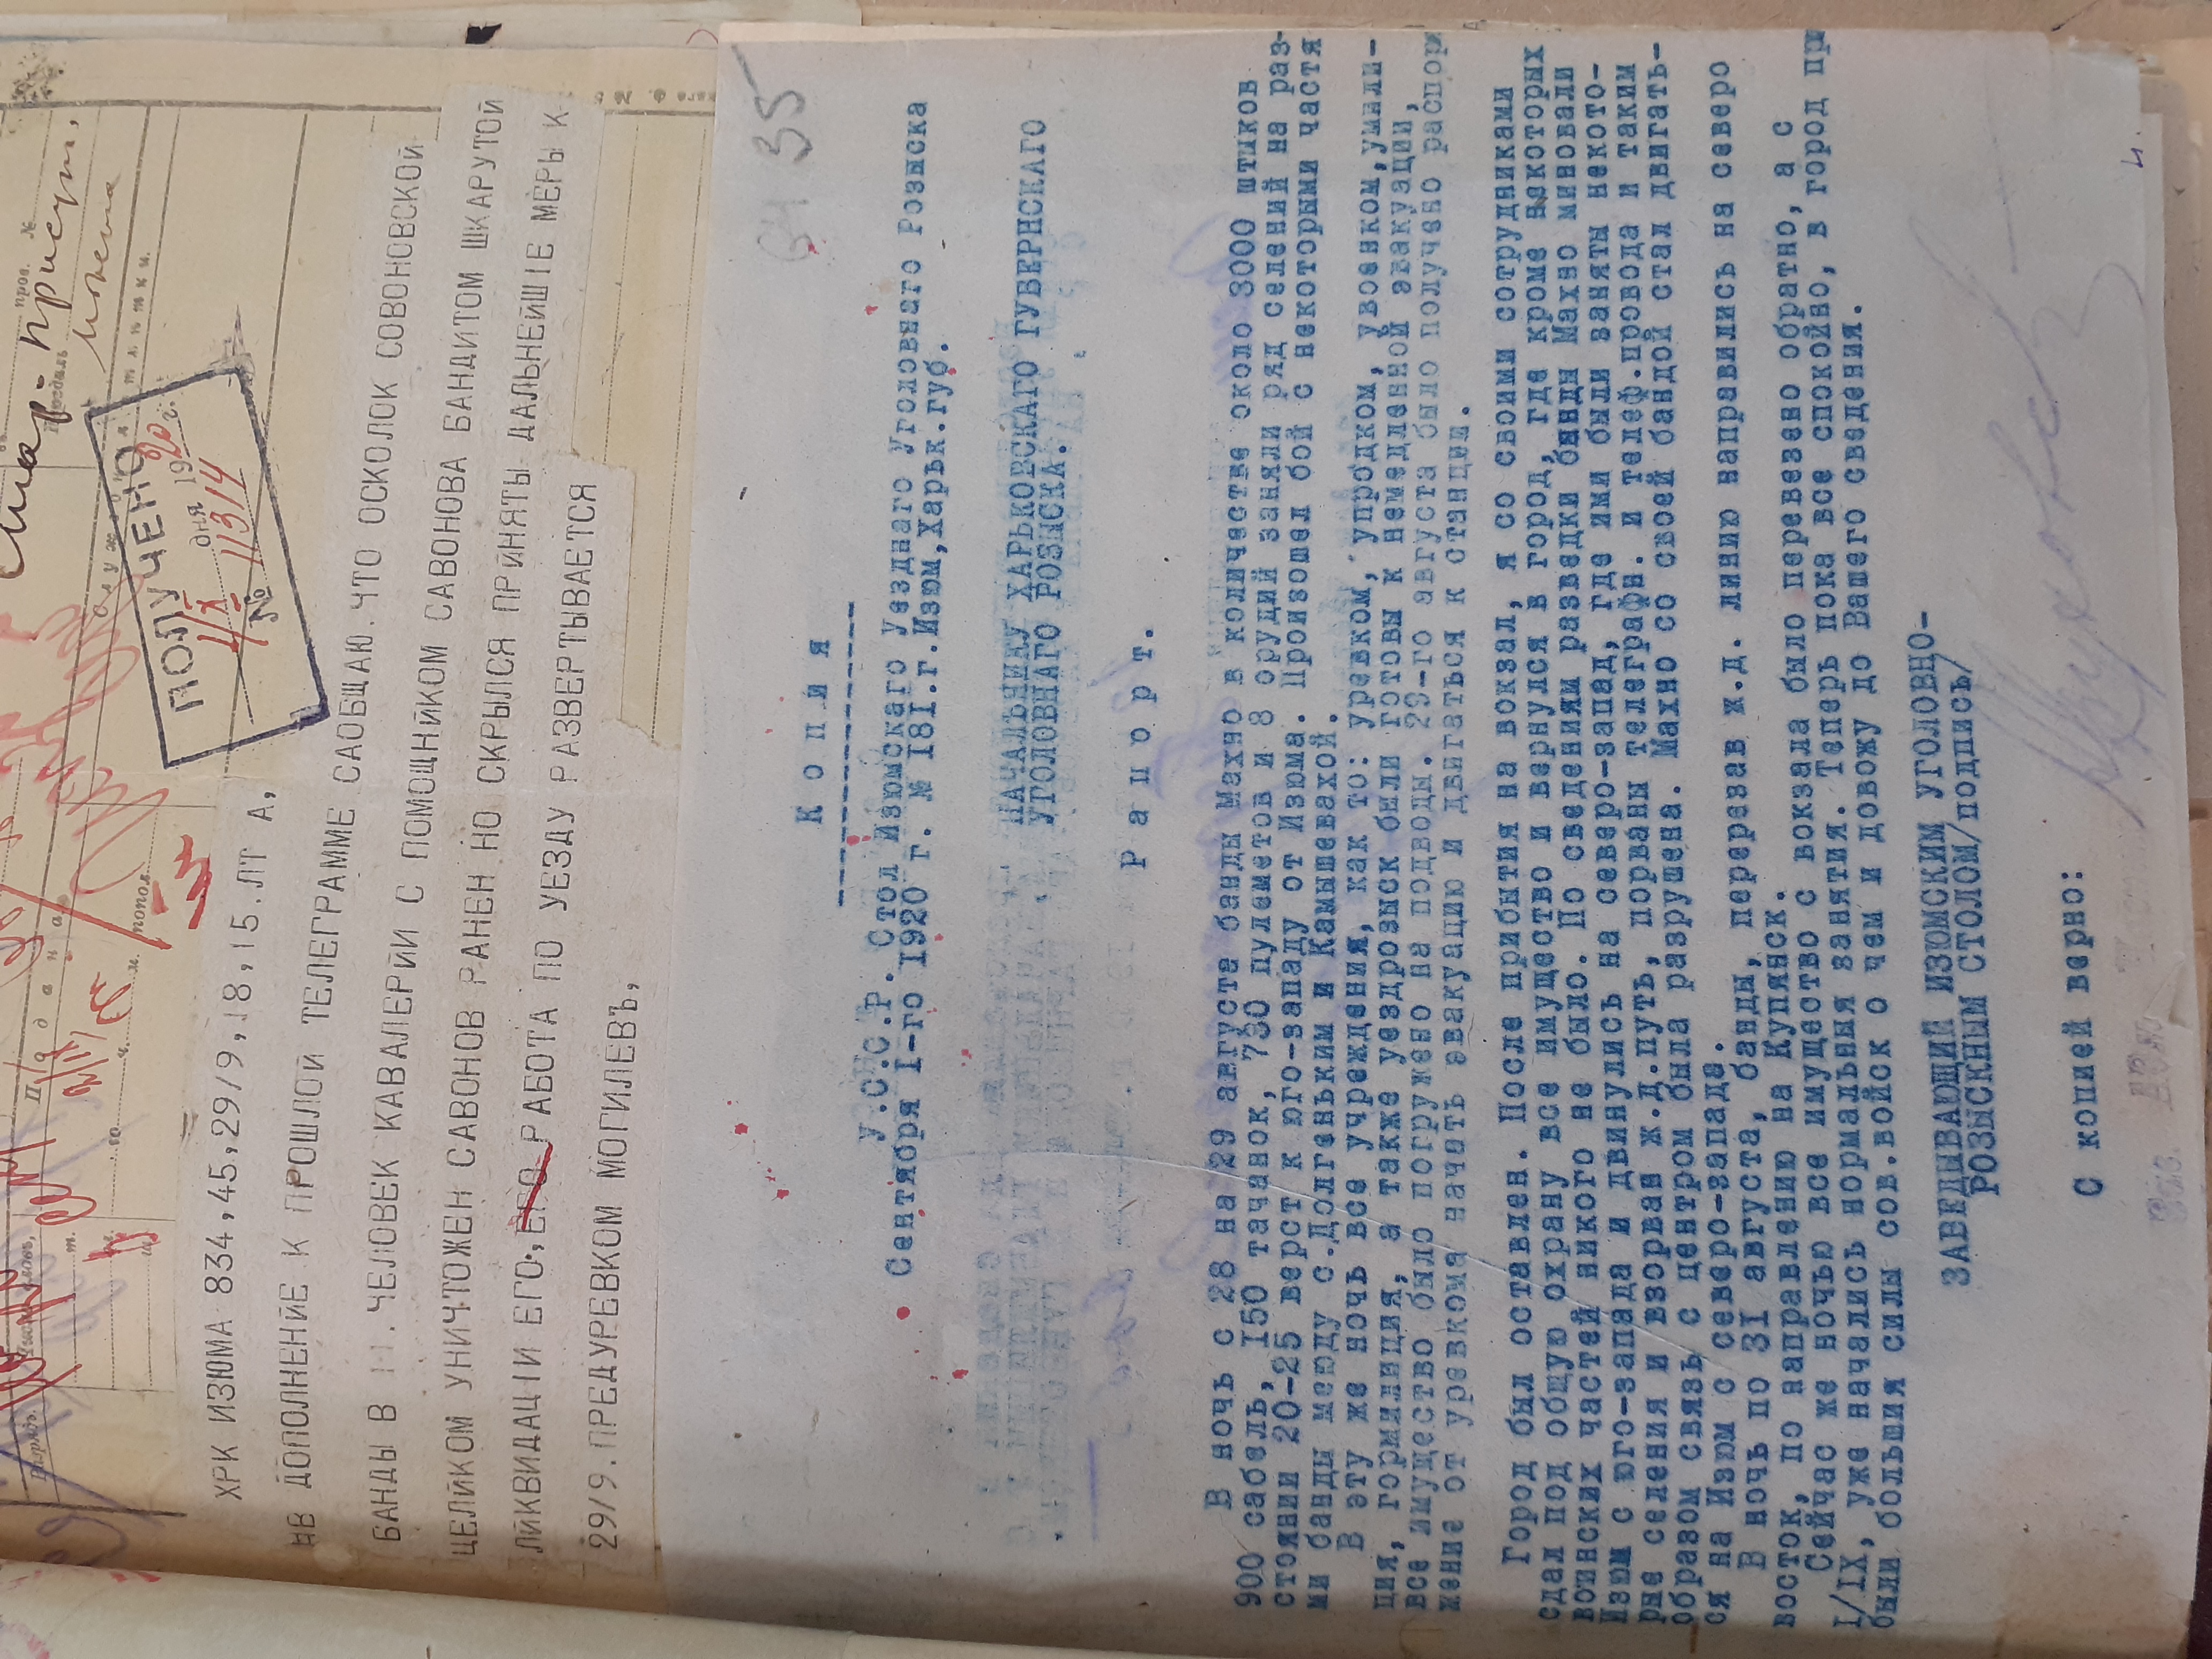 ПОЛУЧЕНО
дня 19 20 г.
№ 11314
ХРК ИЗЮМА 834,45,29/9,18,15.ЛТ А,
НВ ДОПОЛНЕНЙЕ К ПРОШЛОЙ ТЕЛЕГРАММЕ САОБЩАЮ.ЧТО ОСКОЛОК СОВОНОВСКОЙ
БАНДЫ В ЧЕЛОВЕК КАВАЛЕРЙИ С ПОМОЩНЙКОМ САВОНОВА БАНДИТОМ ШКАРУТОЙ
ЦЕЛЙКОМ УНИЧТОЖЕН САВОНОВ РАНЕН НО СКРЫЛСЯ ПРЙНЯТЫ ДАЛЬНЕЙШІЕ МЕРЫ К
ЛЙКВИДАЦІИ ЕГО,ЕГО РАБОТА ПО УЕЗДУ РАЗВЕРТЫВАЕТСЯ
29/9.ПРЕДУРЕВКОМ МОГИЛЕВЪ,
35
К о п и я
У.С.С.Р. Стол Изюмскаго Уезднаго Уголовнаго Розыска
Сентября I-го 1920 г. № 181.г.Изюм,Харьк.губ.
НАЧАЛЬНИКУ ХАРЬКОВСКАГО ГУБЕРНСКАГО
УГОЛОВНАГО РОЗЫСКА.
Р а п о р т.
В ночь с 28 на 29 августа банды Махно в количестве около 3000 штыков
900 сабель, 150 тачанок, 730 пулеметов и 8 орудий заняли ряд селений на раз-
стоянии 20-25 верст к юго-западу от Изюма. Произошел бой с некоторыми частя
ми банды между с.Долгеньким и Камышевахой.
В эту же ночь все учреждения, как то: уревком, упродком, увоенком,умили-
ция, гормилиция, а также уездрозыск были готовы к немедленной эвакуации,
все имущество было погружено на подводы. 29-го августа было получено распоря
жение от уревкома начать эвакуацию и двигаться к станции.
Город был оставлен. После прибытия на вокзал, я со своими сотрудниками
сдал под общую охрану все имущество и вернулся в город, где кроме некоторых
воинских частей никого не было. По сведениям разведки банды Махно миновали
Изюм с юго-запада и двинулись на северо-запад, где ими были заняты некото-
рые селения и взорван ж.д.путь, порваны телеграфн. и телеф.провода и таким
образом связь с центром была разрушена. Махно со своей бандой стал двигать-
ся на Изюм с северо-запада.
В ночь по 31 августа, банды, перерезав ж.д. линию направились на северо
восток, по направлению на Купянск.
Сейчас же ночью все имущество с вокзала было перевезено обратно, а с
I/IX, уже начались нормальныя занятия. Теперь пока все спокойно, в город при
были большия силы сов.войск о чем и довожу до Вашего сведения.
ЗАВЕДЫВАЮЩИЙ ИЗЮМСКИМ УГОЛОВНО-
РОЗЫСКНЫМ СТОЛОМ/подпись/
С копией верно: